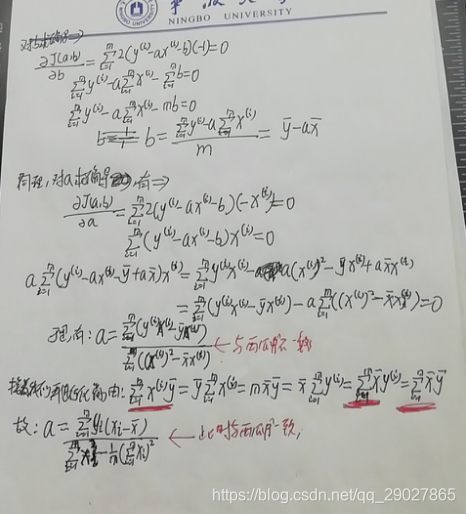 NINGBO UNIVERSITY
对b求偏导⇒
∂J(a,b)/∂b = Σ_{i=1}^{m} 2(y^{(i)}-ax^{(i)}-b)(-1)=0
Σ_{i=1}^{m} y^{(i)}-aΣ_{i=1}^{m} x^{(i)}-Σ_{i=1}^{m} b=0
Σ_{i=1}^{m} y^{(i)}-aΣ_{i=1}^{m} x^{(i)}-mb=0
b = (Σ_{i=1}^{m} y^{(i)}-aΣ_{i=1}^{m} x^{(i)})/m = ȳ-ax̄
同理,对a求偏导,有⇒
∂J(a,b)/∂a = Σ_{i=1}^{m} 2(y^{(i)}-ax^{(i)}-b)(-x^{(i)})=0
Σ_{i=1}^{m} (y^{(i)}-ax^{(i)}-b)x^{(i)}=0
a Σ_{i=1}^{m} (y^{(i)}-ax^{(i)}-ȳ+ax̄)x^{(i)} = Σ_{i=1}^{m} y^{(i)}x^{(i)}-a(x^{(i)})²-ȳx^{(i)}+ax̄x^{(i)}
= Σ_{i=1}^{m} (y^{(i)}x^{(i)}-ȳx^{(i)})-aΣ_{i=1}^{m} ((x^{(i)})²-x̄x^{(i)})=0
: a = Σ_{i=1}^{m} (y^{(i)}x^{(i)}-ȳx^{(i)}) / Σ_{i=1}^{m} ((x^{(i)})²-x̄x^{(i)}) ← 与西瓜书不一致
由: Σ_{i=1}^{m} x^{(i)}ȳ = ȳΣ_{i=1}^{m} x^{(i)} = mx̄ȳ = x̄Σ_{i=1}^{m} y^{(i)} = Σ_{i=1}^{m} x̄y^{(i)} = Σ_{i=1}^{m} x̄ȳ
故: a = Σ_{i=1}^{m} y_i(x_i-x̄) / (Σ_{i=1}^{m} x_i²-1/m(Σ_{i=1}^{m} x_i)²) ← 此时与西瓜书一致,
https://blog.csdn.net/qq_29027865